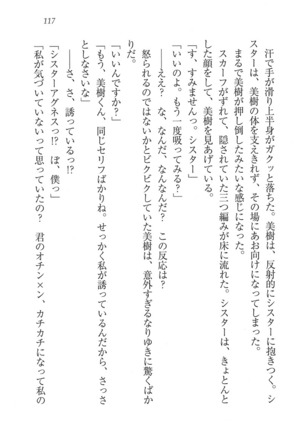 117
汗で手が滑り上半身がガクッと落ちた。美樹は、反射的にシスターに抱きつく。シ
スターは、美樹の体を支えきれず、その場にあお向けになってしまった。
まるで美樹が押し倒したみたいな感じになった。
スカーフがずれて、隠されていた三つ編みが床に流れた。シスターは、きょとんと
した顔をして、美樹を見あげている。
「す、すみませんっ。シスター」
「いいのよ。もう一度吸ってみる?」
――ええ? な、なんだ、なんなんだ? この反応は?
怒られるのではないかとビクビクしていた美樹は、意外すぎるなりゆきに驚くばか
りだ。
「いいんですか?」
「もう、美樹くん、同じセリフばかりね。せっかく私が誘っているんだから、さっさ
としなさいな」
――さ、さ、誘っているっ!?
「シスターアグネスっ!? ぼ、僕っ」
「私が気づいていないって思っていたの? 君のオチン×ン、カチカチになって私の